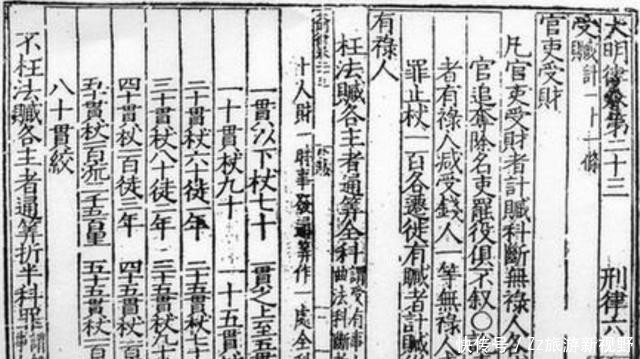 大明律卷第二十三 刑律六
受贓計一十一條
官吏受財
凡官吏受財者計贓科斷無祿人
官追奪除名吏罷役俱不敘〇
者有祿人減受錢人一等無祿人
罪止杖一百各遷徙有贓者計贓
有祿人
枉法贓各主者通算全科謂受有事
曲法科斷
十人財一時事發通算作一處全科
一貫以下杖七十 一貫之上至五貫
一十貫杖九十 一十五貫
二十貫杖六十徒一年 二十五貫杖七十
三十貫杖八十徒二年 三十五貫杖九十
四十貫杖一百徒三年 四十五貫
五十貫杖一百流二千五百里 五十五貫
八十貫絞
不枉法贓各主者通算折半科罪
快传号/Zz旅游新视野